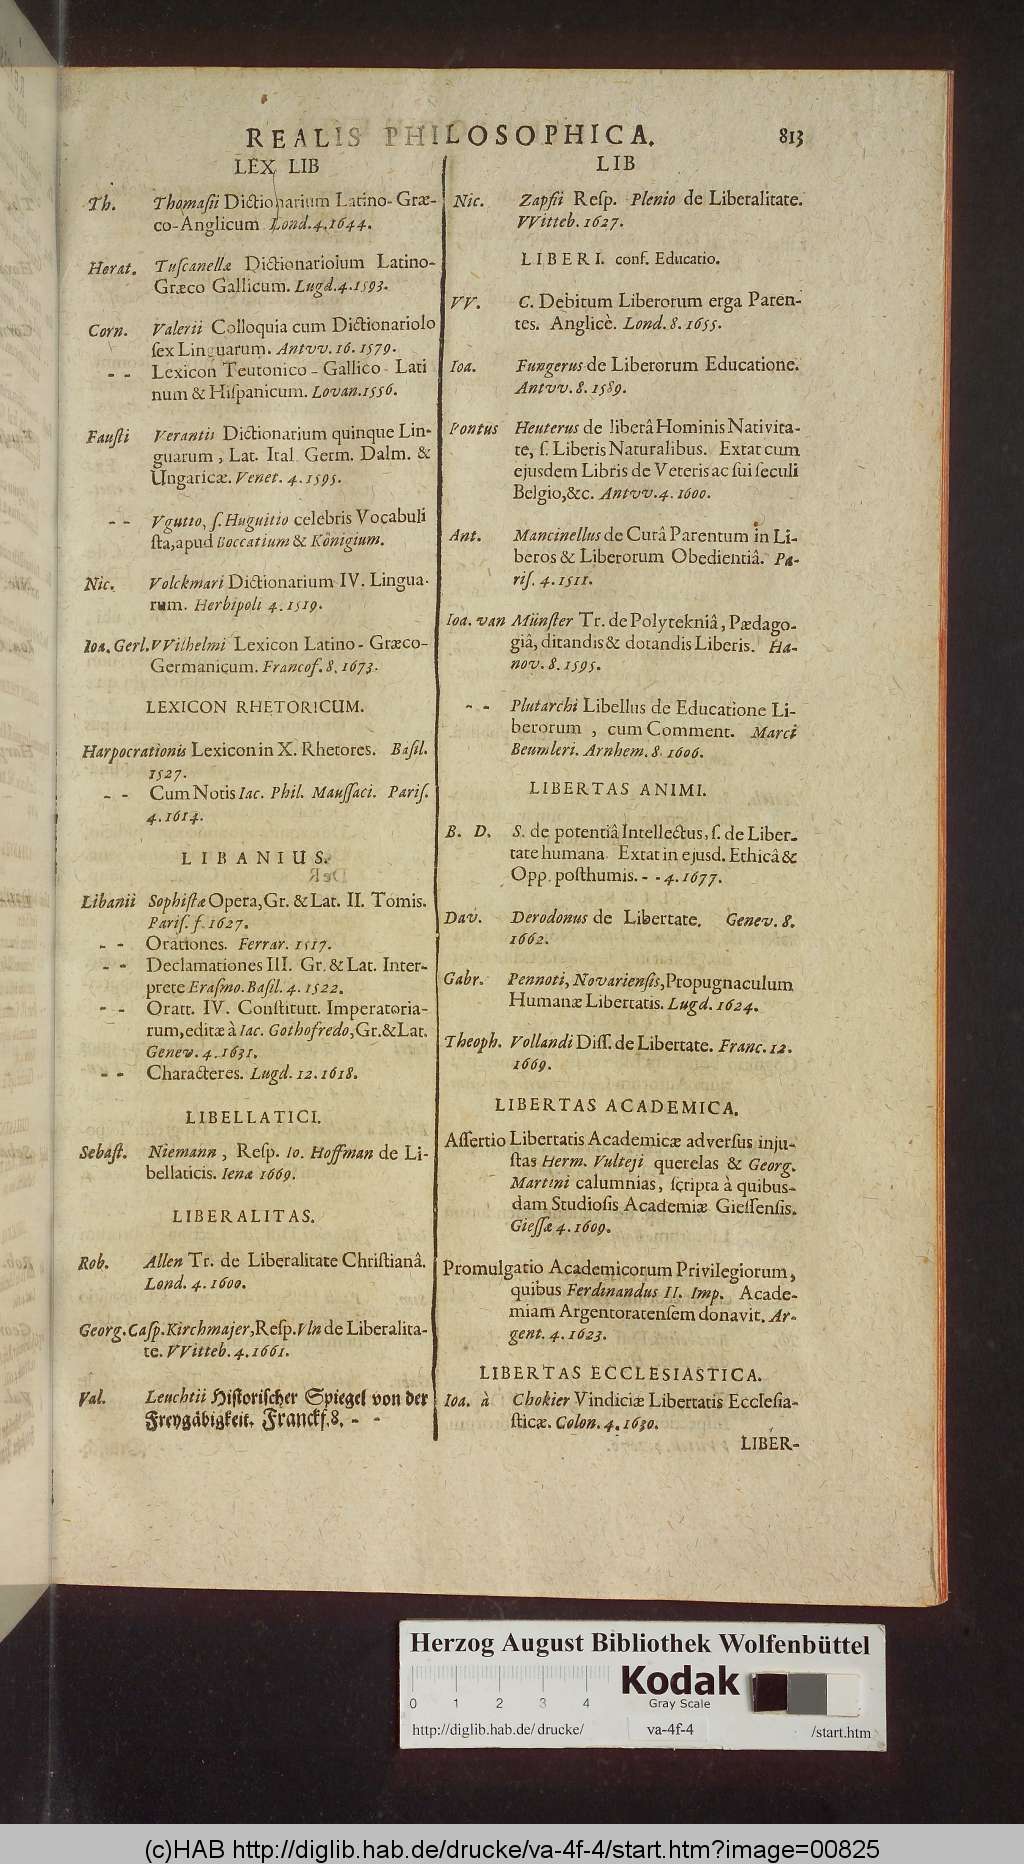 REALIS PHILOSOPHICA. 813
LEX LIB
Th. Thomasii Dictionarium Latino-Græ-
co-Anglicum Lond. 4. 1644.
Herat. Tuscanellæ Dictionariolum Latino-
Græco Gallicum. Lugd. 4. 1593.
Corn. Valerii Colloquia cum Dictionariolo
sex Linguarum. Antvv. 16. 1579.
- - Lexicon Teutonico - Gallico - Lati
num & Hispanicum. Lovan. 1556.
Fausti Verantii Dictionarium quinque Lin-
guarum, Lat. Ital Germ. Dalm. &
Ungaricæ. Venet. 4. 1595.
- - Vgutto, s. Huguitio celebris Vocabuli
sta, apud Boccatium & Königium.
Nic. Volckmari Dictionarium IV. Lingua-
rum. Herbipoli 4. 1519.
Ioa. Gerl. VVilhelmi Lexicon Latino - Græco-
Germanicum. Francof. 8. 1673.
LEXICON RHETORICUM.
Harpocrationis Lexicon in X. Rhetores. Basil.
1527.
- - Cum Notis Iac. Phil. Maussaci. Paris.
4. 1614.
LIBANIUS.
Libanii Sophistæ Opera, Gr. & Lat. II. Tomis.
Paris. f. 1627.
- - Orationes. Ferrar. 1517.
- - Declamationes III. Gr. & Lat. Inter-
prete Erasmo. Basil. 4. 1522.
- - Oratt. IV. Constitutt. Imperatoria-
rum, editæ à Iac. Gothofredo, Gr. & Lat.
Genev. 4. 1631.
- - Characteres. Lugd. 12. 1618.
LIBELLATICI.
Sebast. Niemann, Resp. Io. Hoffman de Li-
bellaticis. Ienæ 1669.
LIBERALITAS.
Rob. Allen Tr. de Liberalitate Christianâ.
Lond. 4. 1600.
Georg. Casp. Kirchmajer, Resp. Vln de Liberalita-
te. VVitteb. 4. 1661.
Val. Leuchtii Historischer Spiegel von der
Freygäbigkeit. Franckf. 8. - -
LIB
Nic. Zapfii Resp. Plenio de Liberalitate.
VVitteb. 1627.
LIBERI. conf. Educatio.
VV. C. Debitum Liberorum erga Paren-
tes. Anglicè. Lond. 8. 1655.
Ioa. Fungerus de Liberorum Educatione.
Antvv. 8. 1589.
Pontus Heuterus de liberâ Hominis Nativita-
te, s. Liberis Naturalibus. Extat cum
ejusdem Libris de Veteris ac sui seculi
Belgio, &c. Antvv. 4. 1600.
Ant. Mancinellus de Curâ Parentum in Li-
beros & Liberorum Obedientiâ. Pa-
ris. 4. 1511.
Ioa. van Münster Tr. de Polytekniâ, Pædago-
giâ, ditandis & dotandis Liberis. Ha-
nov. 8. 1595.
- - Plutarchi Libellus de Educatione Li-
berorum, cum Comment. Marci
Beumleri. Arnhem. 8. 1606.
LIBERTAS ANIMI.
B. D. S. de potentiâ Intellectus, s. de Liber-
tate humana Extat in ejusd. Ethicâ &
Opp. posthumis. - - 4. 1677.
Dav. Derodonus de Libertate. Genev. 8.
1662.
Gabr. Pennoti, Novariensis, Propugnaculum
Humanæ Libertatis. Lugd. 1624.
Theoph. Vollandi Diss. de Libertate. Franc. 12.
1669.
LIBERTAS ACADEMICA.
Assertio Libertatis Academicæ adversus inju-
stas Herm. Vulteji querelas & Georg.
Martini calumnias, scripta à quibus-
dam Studiosis Academiæ Giessensis.
Giessæ 4. 1609.
Promulgatio Academicorum Privilegiorum,
quibus Ferdinandus II. Imp. Acade-
miam Argentoratensem donavit. Ar-
gent. 4. 1623.
LIBERTAS ECCLESIASTICA.
Ioa. à Chokier Vindiciæ Libertatis Ecclesia-
sticæ. Colon. 4. 1630.
LIBER-
Herzog August Bibliothek Wolfenbüttel
Kodak
Gray Scale
0 1 2 3 4
http://diglib.hab.de/drucke/ va-4f-4 /start.htm
(c)HAB http://diglib.hab.de/drucke/va-4f-4/start.htm?image=00825